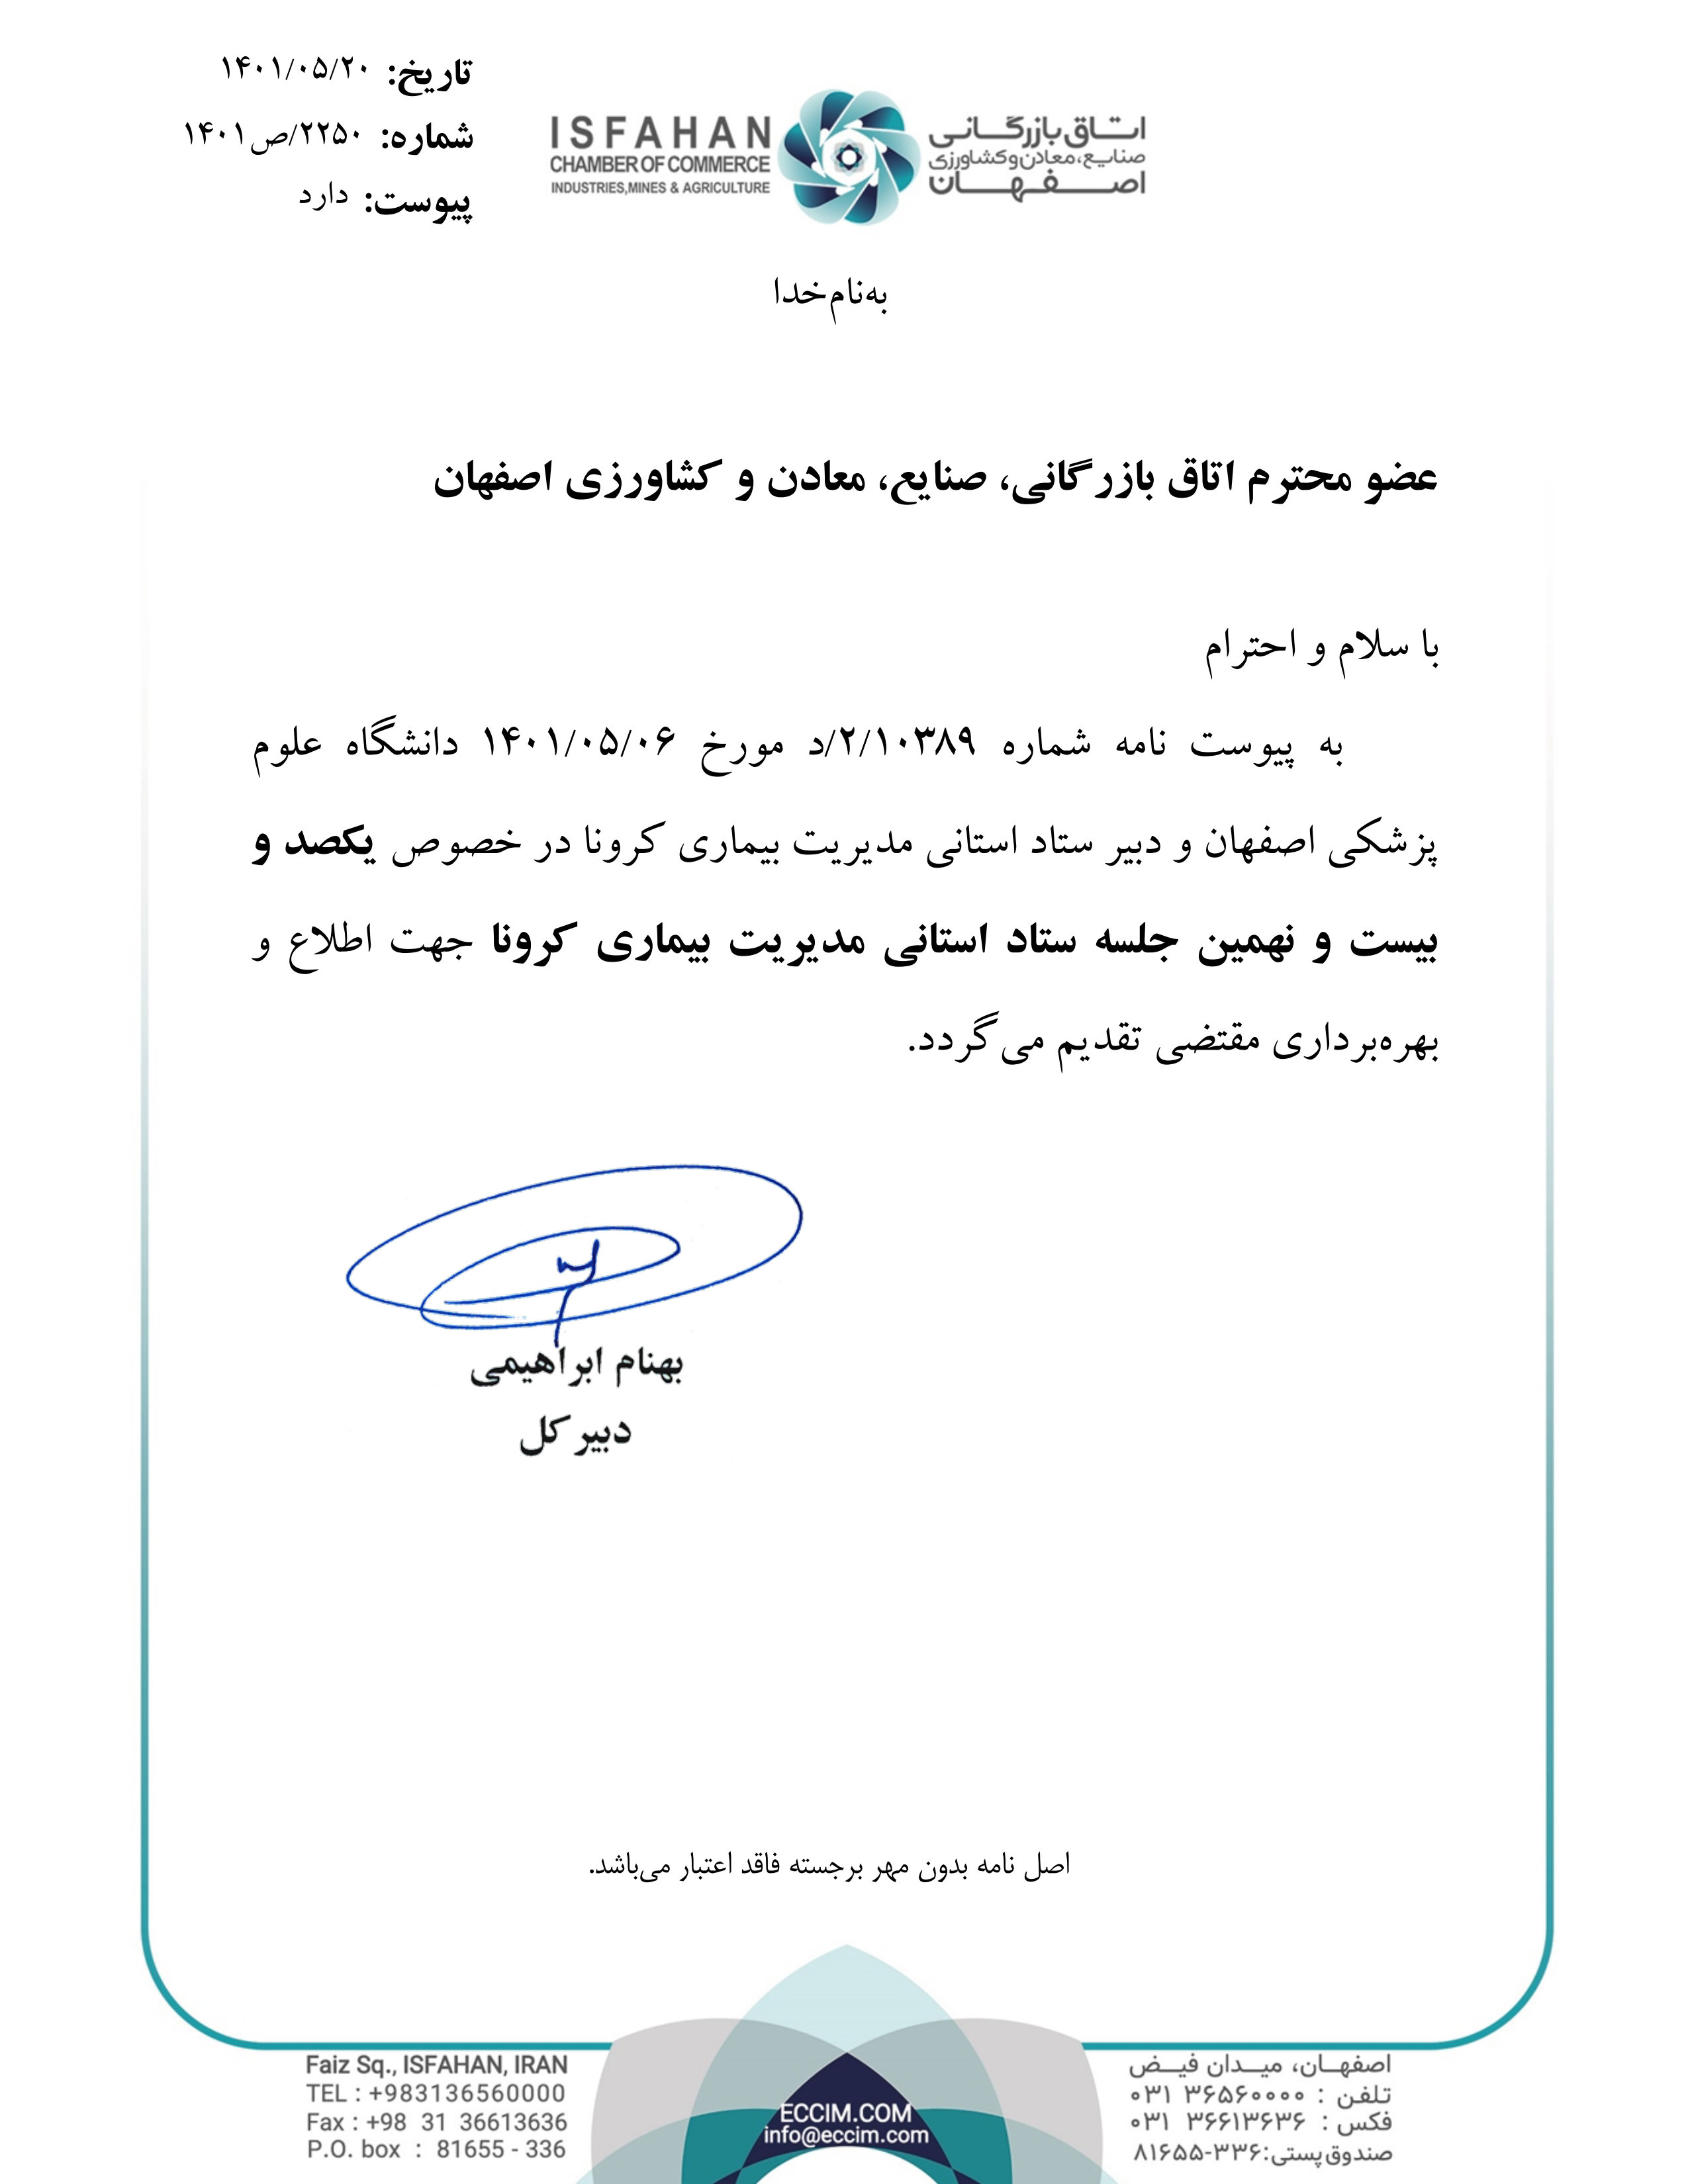 تاریخ: ۱۴۰۱/۰۵/۲۰
شماره: ۲۲۵۰/ص۱۴۰۱
پیوست: دارد
ISFAHAN
CHAMBER OF COMMERCE
INDUSTRIES,MINES & AGRICULTURE
اتاق بازرگانی
صنایع،معادن و کشاورزی
اصفهان
به‌نام‌خدا
عضو محترم اتاق بازرگانی، صنایع، معادن و کشاورزی اصفهان
با سلام و احترام
به پیوست نامه شماره ۲/۱۰۳۸۹/د مورخ ۱۴۰۱/۰۵/۰۶ دانشگاه علوم
پزشکی اصفهان و دبیر ستاد استانی مدیریت بیماری کرونا در خصوص یکصد و
بیست و نهمین جلسه ستاد استانی مدیریت بیماری کرونا جهت اطلاع و
بهره‌برداری مقتضی تقدیم می‌گردد.
بهنام ابراهیمی
دبیرکل
اصل نامه بدون مهر برجسته فاقد اعتبار می‌باشد.
Faiz Sq., ISFAHAN, IRAN
TEL : +983136560000
Fax : +98 31 36613636
P.O. box : 81655 - 336
ECCIM.COM
info@eccim.com
اصفهان، میدان فیض
تلفن : ۳۶۵۶۰۰۰۰ ۰۳۱
فکس : ۳۶۶۱۳۶۳۶ ۰۳۱
صندوق پستی:۳۳۶-۸۱۶۵۵